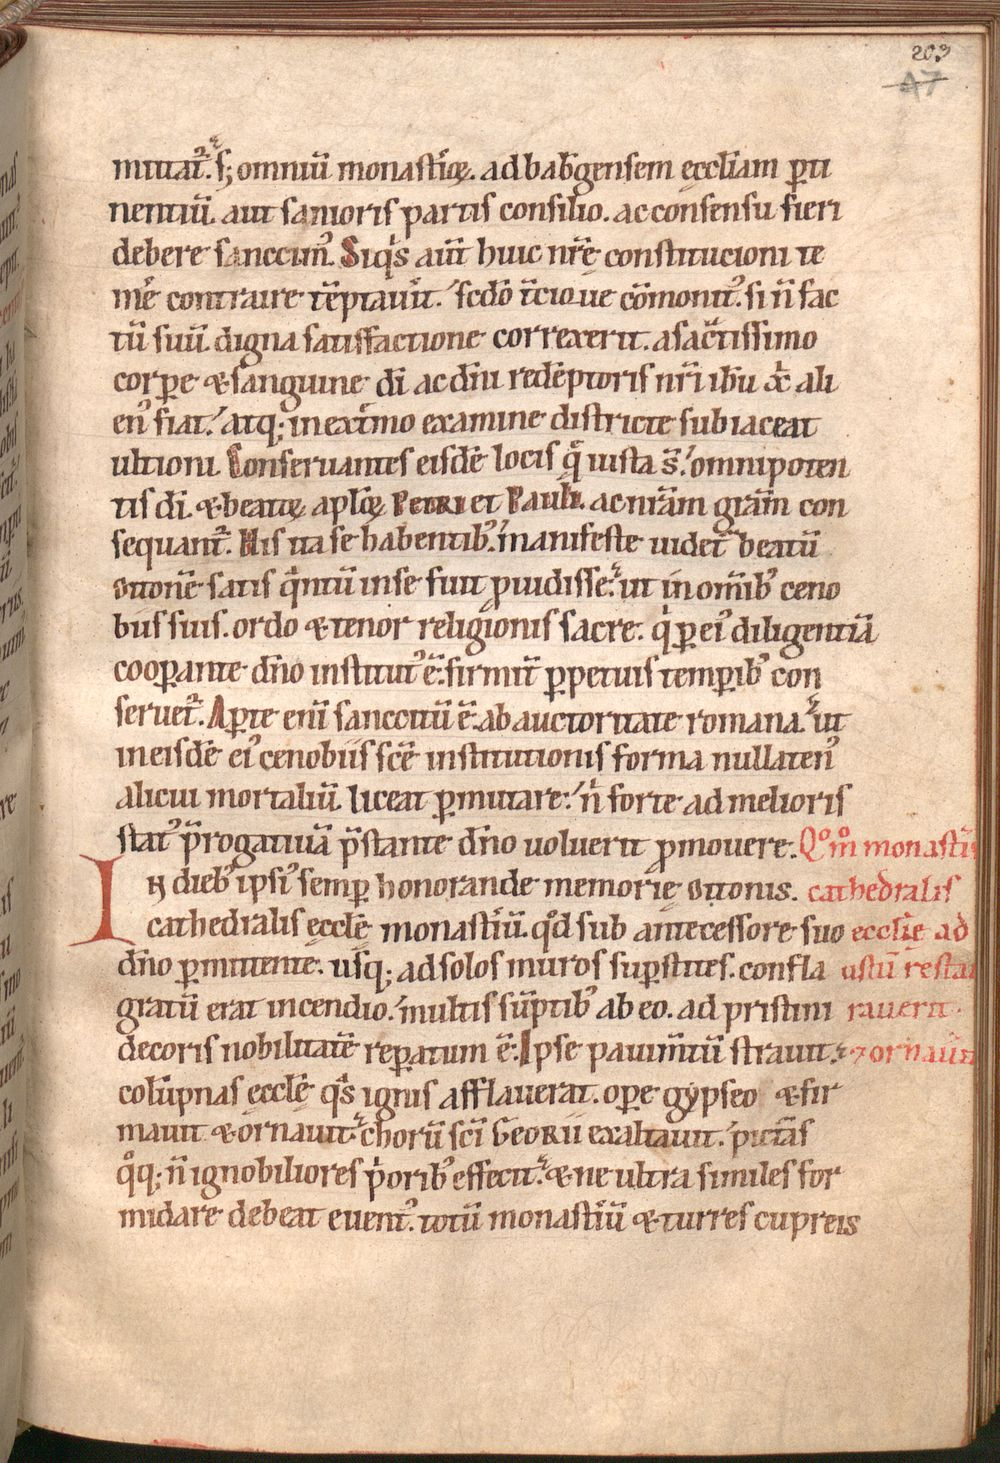 203
47
mittat᷑. s; omniū monasti͛oꝝ. ad babgensem ęccłiam ꝑti
nentiū. aut sanioris partis consilio. ac consensu fieri
debere sanccim᷒. Siqͥs aut̄ huic nr̄ę constitucioni te
me᷑ contraire te̅ptaueri̅t. scd̄o t̄cio ue co̅monit᷒. si n̅ fac
tū suū. digna satisfactione correxerit. a sac̄tissimo
corꝑe ⁊ sanguine dī ac dn̄i rede̅ptoris nr̄i ih̄u xp̄i ali
en᷒ fiat. atq; in extͤmo examine districte subiaceat
ultioni. Conseruantes eisde̅ locis q̨ͣ iusta s̄t. omnipoten
tis dī. ⁊ beatoꝝ apłoꝝ Petri et Pauli. ac nr̄am grām con
sequant᷑. His ita se habentib᷒. manifeste uidet᷑ beatū
ottone̅ satis qͣntū in se fuit ꝓuidisse. ut in om̄ib᷒ ceno
biis suis. ordo ⁊ tenor religionis sacre. qͥ ꝑ ei᷒ diligentiā
cooꝑante dn̄o institut᷒ ē. firmit̄ ꝑpetuis temꝑib᷒ con
seruet᷑. Aꝑte enī sanccitū ē. ab auctoritate romana. ut
in eisde̅ ei᷒ cenobiis scē institutionis forma nullaten᷒
alicui mortaliū. liceat ꝑmutare. nͥ forte ad melioris
stat᷒ p̄rogatiuā p̄stante dn̄o uoluerit ꝓmouere. Qͦmͦ monastiͤ
In dieb᷒ ipsi᷒ semꝑ honorande memorię ottonis. cathedralis
cathedralis ęcclē monasti͛ū. qͦd sub antecessore suo ecclīe ad
dn̄o ꝑmittente. usq; ad solos muros suꝑstites. confla ustū restau
gratū erat incendio. multis su̅ptib᷒ ab eo. ad pristini rauerit.
decoris nobilitate̅ reꝑatum ē. Ipse pauim̄tū strauit. ⁊ ornau̅it
colu̅pnas ęcclē qͣs ignis afflauerat. oꝑe gypseo ⁊ fir
mauit ⁊ ornauit. chorū scī Georii exaltauit. pictās
qͦq; n̅ ignobiliores pͥorib᷒ effecit. ⁊ ne ultra similes for
midare debeat euent᷒. totū monasti͛ū ⁊ turres cupreis